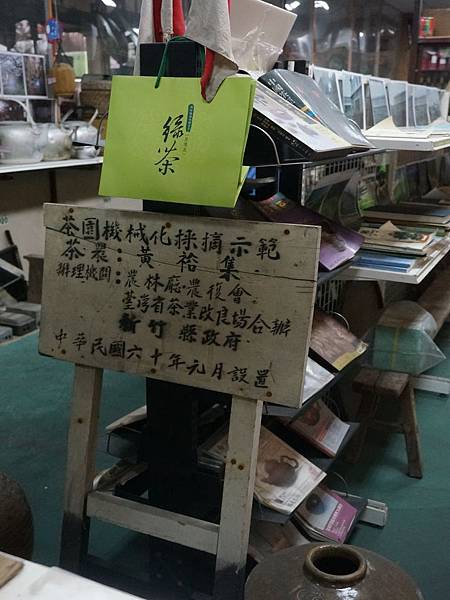 綠茶
茶園機械化採摘示範
茶農：黃拾集
辦理機關：農林廳·農復會
臺灣省茶業改良場合辦
新竹縣政府
中華民國六十年元月設置